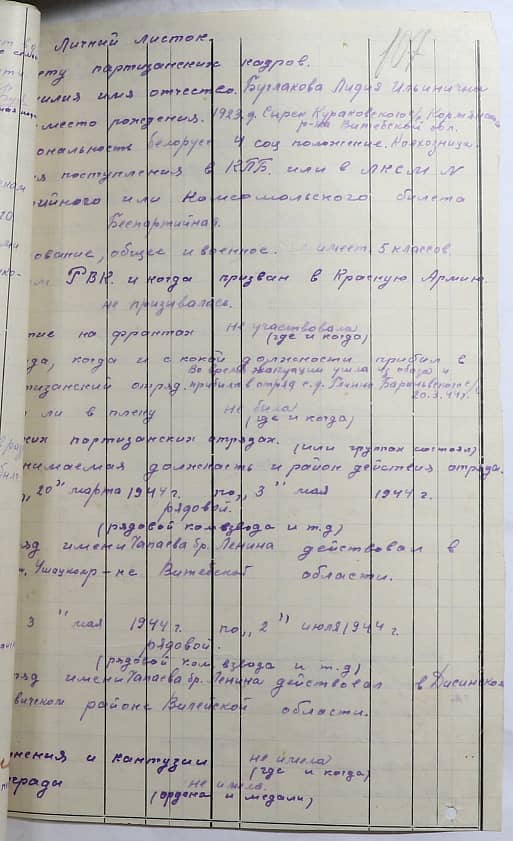 107
Личний листок.
ету партизанских кадров.
милия имя отчество. Буглакова Лидия Ильинична
место рождения. 1923 д. Сирск Кураковского с/с
р-на Витебской обл.
ональность белорус 4 соц положение. Колхозница.
я поступления в КПБ. или в ЛКСМ. N
ийного или Комсомольского билета
Беспартийная.
ование, общее и военное. имеет 5 классов.
м РВК. и когда призван в Красную Армию.
не призывалась.
тие на франтах не участвовала
(где и когда)
да, когда и с какой должности прибил в
Во время эвакуации ушла из обоза и
тизанский отряд. прибила в отряд с.д. с/с
20.3.44 г.
ли в плену не била
(где и когда)
ких партизанских отрядах.
(или группах состоял)
нимаемая должность и район действия отряда.
„20" марта 1944 г. по „3" мая 1944 г.
рядовой.
(рядовой ком взвода и т.д)
яд имени Чапаева бр. Ленина действовал в
Ушацком р-не Витебской области.
3" мая 1944 г. по „2" июля 1944 г.
рядовой.
(рядовой ком. взвода и т.д)
яд имени Чапаева бр. Ленина действовал в Дисинском
вичском районе Вилейской области.
нения и кантузии не имела
(где и когда)
грады не имела.
(ордена и медали)